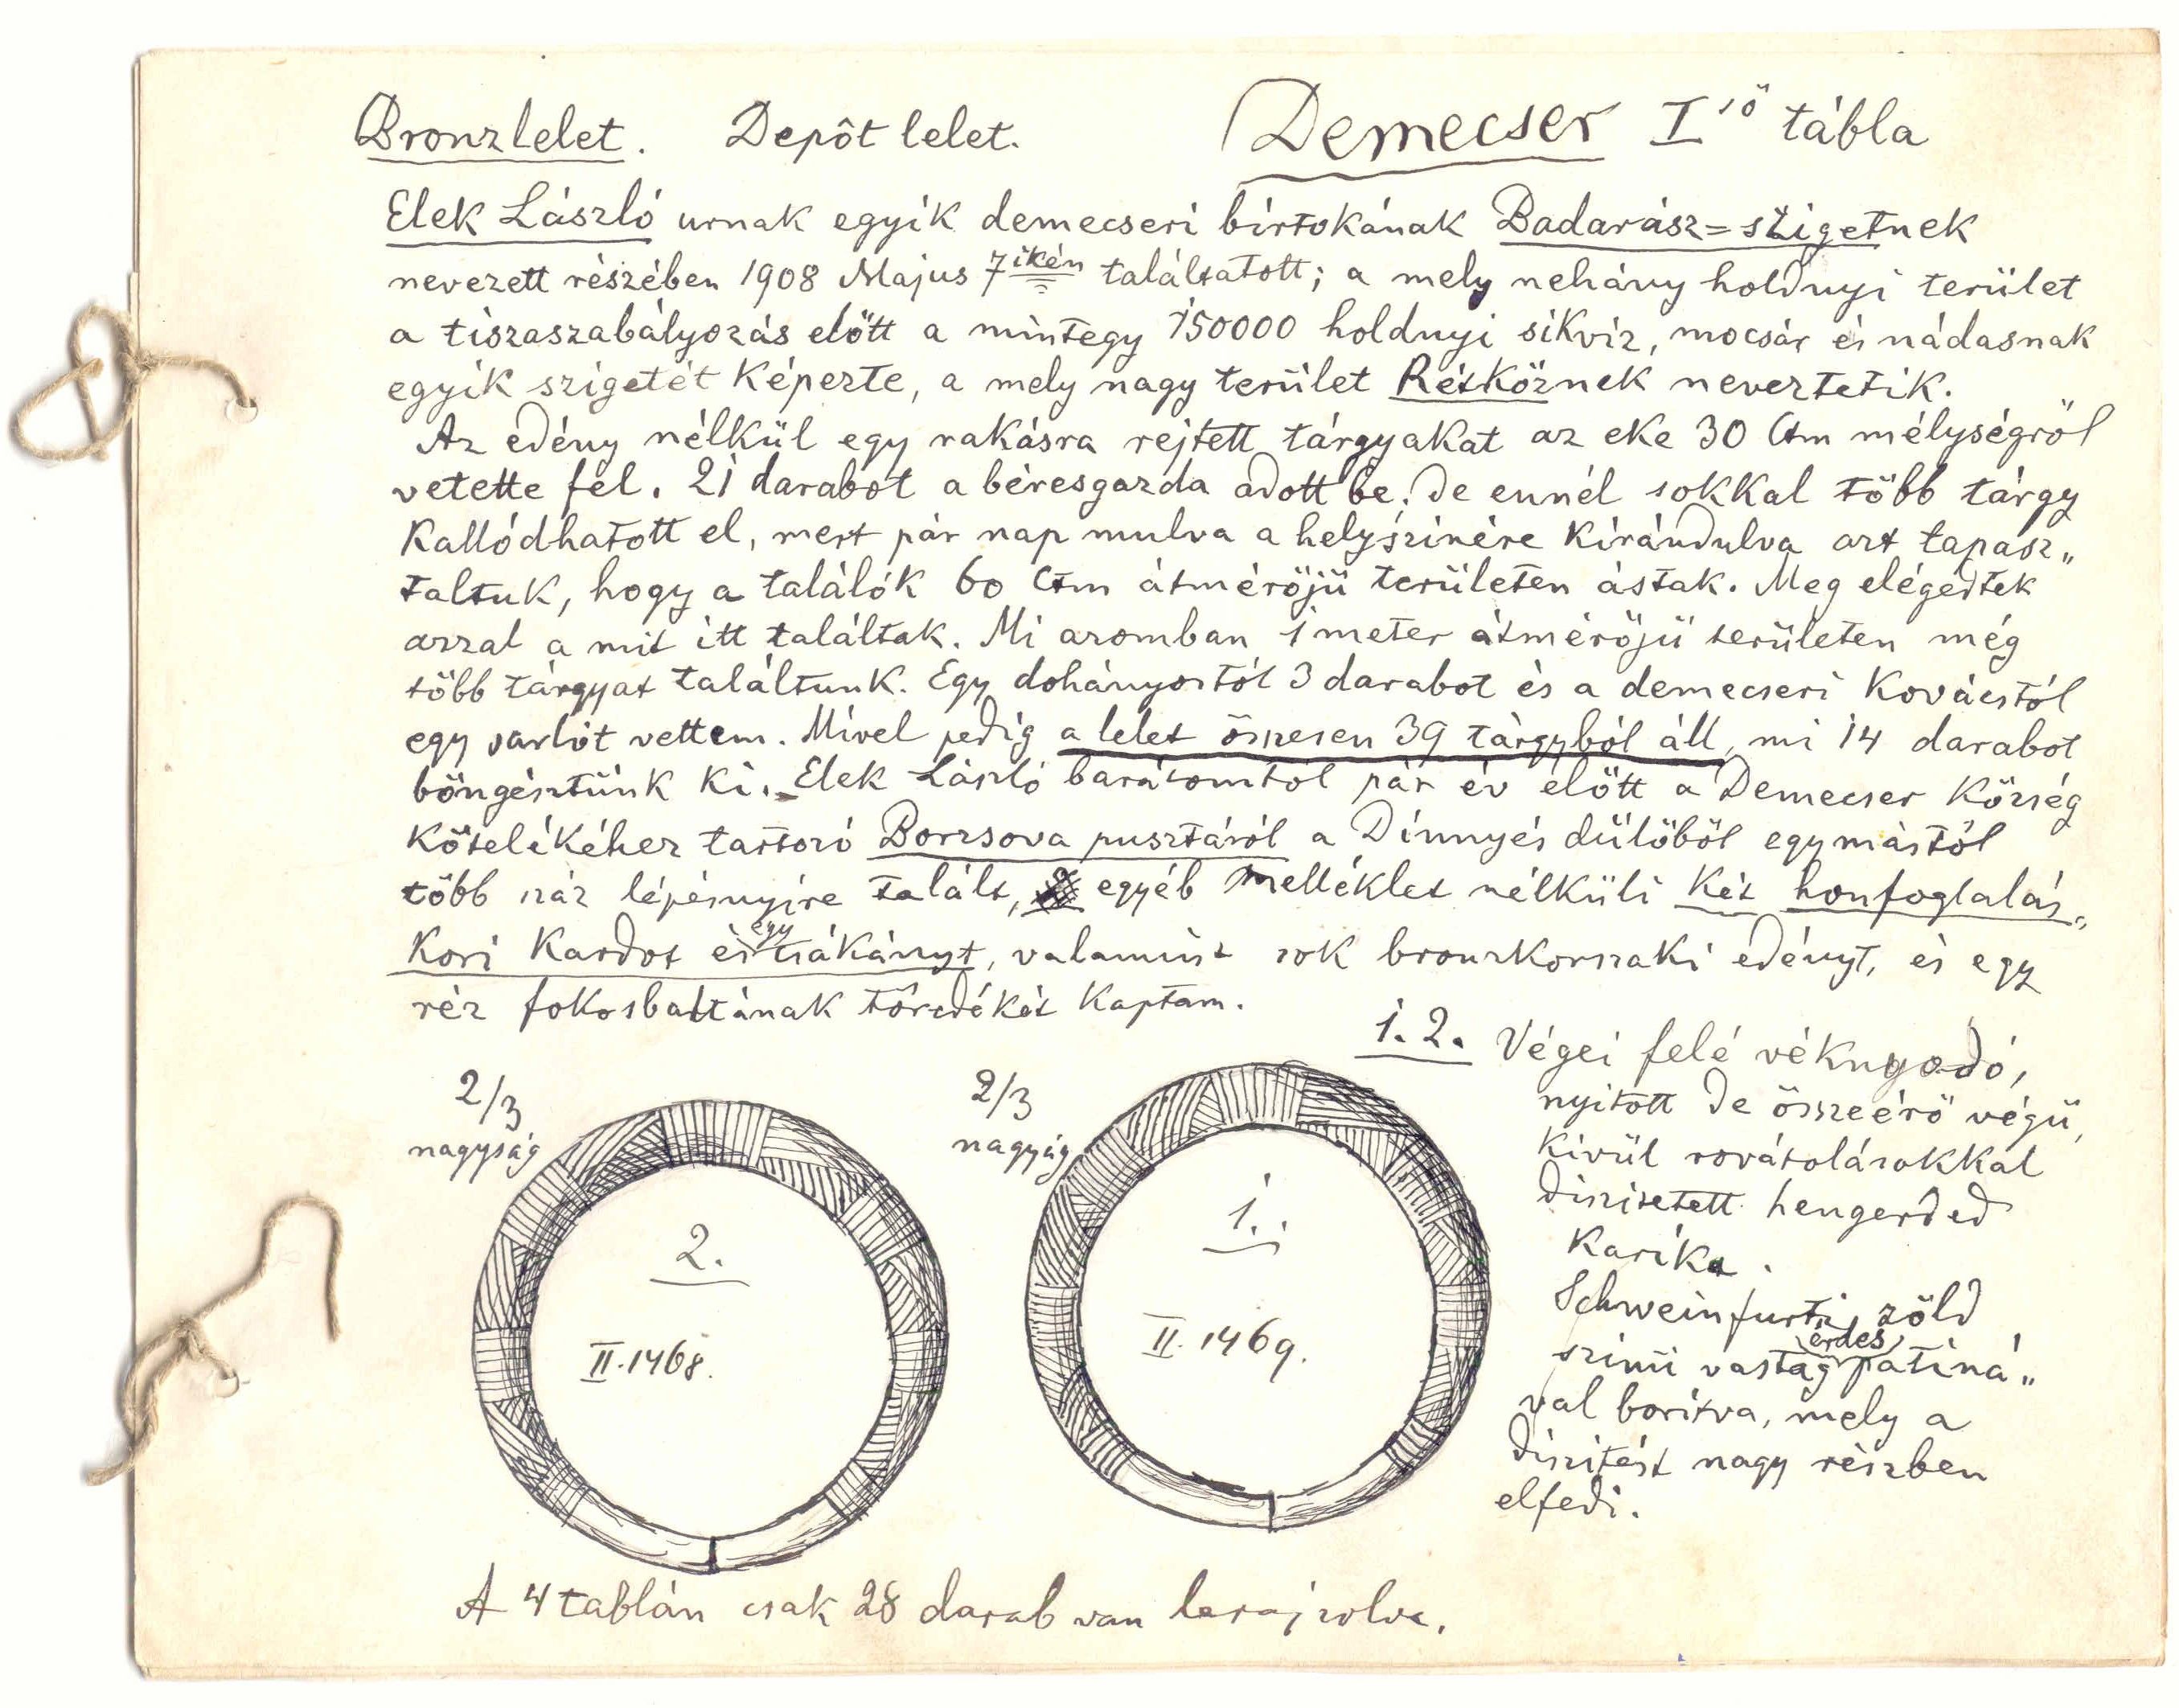 Bronzlelet. Depôt lelet. Demecser I ső tábla
Elek László urnak egyik demecseri birtokának Badarász=szigetnek
nevezett részében 1908 Majus 7ikén találtatott; a mely nehány holdnyi terület
a tiszaszabályozás előtt a mintegy 150000 holdnyi sikviz, mocsár és nádasnak
egyik szigetét képezte, a mely nagy terület Rétköznek neveztetik.
Az edény nélkül egy rakásra rejtett tárgyakat az eke 30 Ctm mélységröl
vetette fel. 21 darabot a béresgazda adott be, de ennél sokkal több tárgy
Kallódhatott el, mert pár nap mulva a helyszinére kirándulva azt tapasz„
taltuk, hogy a találók 60 Ctm átméröjü területen ástak. Meg elégedtek
azzal a mit itt találtak. Mi azomban 1 meter átméröjü területen még
több tárgyat találtunk. Egy dohányostól 3 darabot és a demecseri Kovácstól
egy sarlót vettem. Mivel pedig a lelet összesen 39 tárgyból áll, mi 14 darabot
böngésztünk ki. Elek László barátomtól pár év elött a Demecser Község
Kötelékéhez tartozó Borzsova pusztáról a Dinnyés dülöböl egymástól
több száz lépésnyire talált, egyéb melléklet nélküli Két honfoglalás„
Kori Kardot és egy csákányt, valamint sok bronzkorszaki edényt, és egy
réz fokosbaltának töredékét Kaptam.
1. 2. Végei felé véknyodó,
nyitott de összeérö végü,
Kivül rovátolásokkal
diszitett hengerded
Karika.
Schweinfurti zöld
szinü vastag érdes patiná„
val boritva, mely a
diszitést nagy részben
elfedi.
2/3
nagyság
2.
II. 1468.
2/3
nagyág
1.
II. 1469.
A 4 táblán csak 28 darab van lerajzolva.